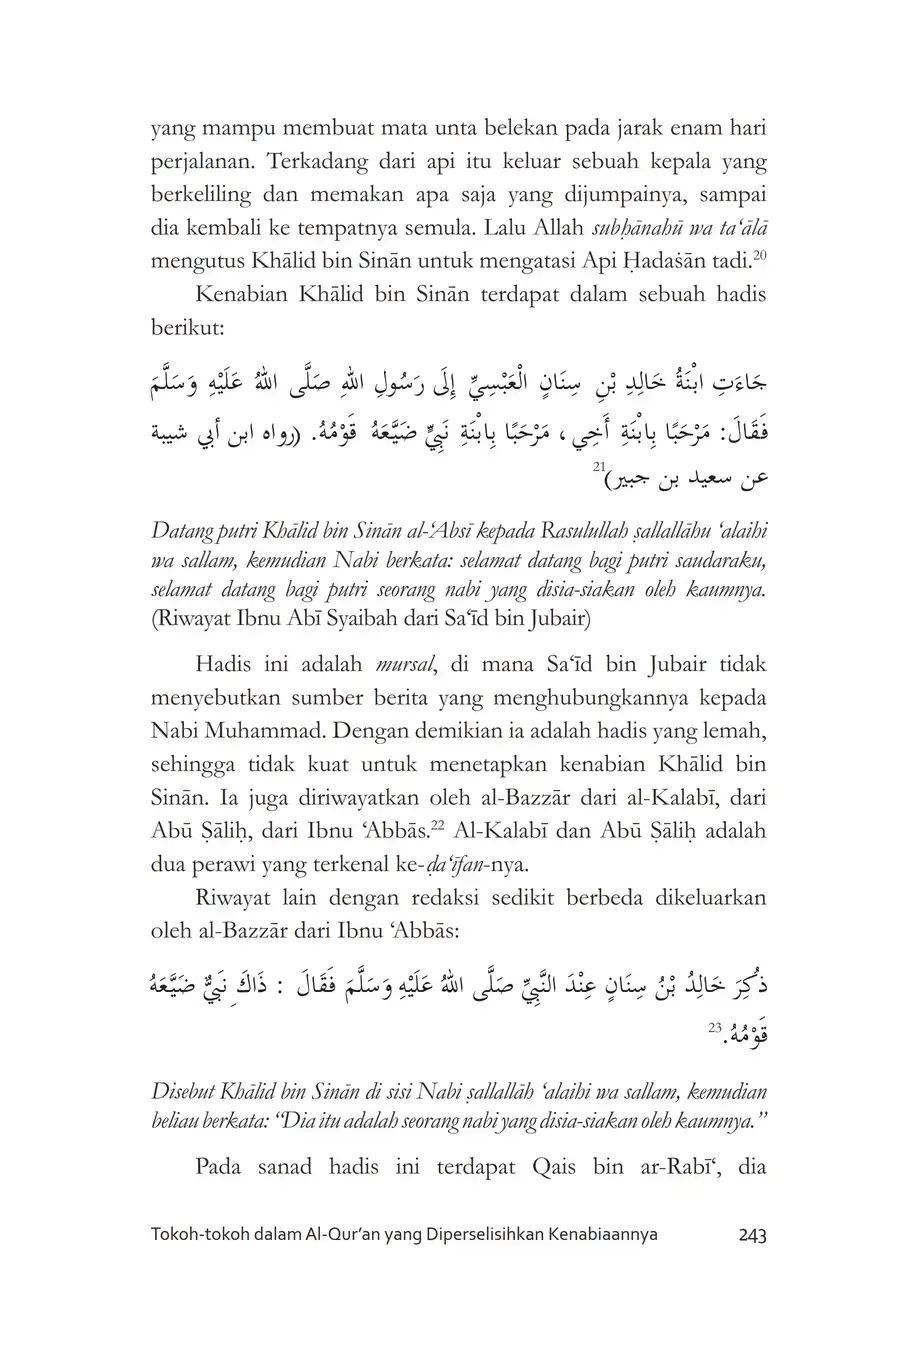 yang mampu membuat mata unta belekan pada jarak enam hari
perjalanan. Terkadang dari api itu keluar sebuah kepala yang
berkeliling dan memakan apa saja yang dijumpainya, sampai
dia kembali ke tempatnya semula. Lalu Allah subḥānahū wa ta‘ālā
mengutus Khālid bin Sinān untuk mengatasi Api Ḥadaṡān tadi.20
Kenabian Khālid bin Sinān terdapat dalam sebuah hadis
berikut:
جَاءَتِ ابْنَةُ خَالِدِ بْنِ سِنَانٍ الْعَبْسِيِّ إِلَى رَسُولِ اللهِ صَلَّى اللهُ عَلَيْهِ وَسَلَّمَ
فَقَالَ: مَرْحَبًا بِابْنَةِ أَخِي ، مَرْحَبًا بِابْنَةِ نَبِيٍّ ضَيَّعَهُ قَوْمُهُ. (رواه ابن أبي شيبة
عن سعيد بن جبير)21
Datang putri Khālid bin Sinān al-‘Absī kepada Rasulullah ṣallallāhu ‘alaihi
wa sallam, kemudian Nabi berkata: selamat datang bagi putri saudaraku,
selamat datang bagi putri seorang nabi yang disia-siakan oleh kaumnya.
(Riwayat Ibnu Abī Syaibah dari Sa‘īd bin Jubair)
Hadis ini adalah mursal, di mana Sa‘īd bin Jubair tidak
menyebutkan sumber berita yang menghubungkannya kepada
Nabi Muhammad. Dengan demikian ia adalah hadis yang lemah,
sehingga tidak kuat untuk menetapkan kenabian Khālid bin
Sinān. Ia juga diriwayatkan oleh al-Bazzār dari al-Kalabī, dari
Abū Ṣāliḥ, dari Ibnu ‘Abbās.22 Al-Kalabī dan Abū Ṣāliḥ adalah
dua perawi yang terkenal ke-ḍa‘īfan-nya.
Riwayat lain dengan redaksi sedikit berbeda dikeluarkan
oleh al-Bazzār dari Ibnu ‘Abbās:
ذُكِرَ خَالِدُ بْنُ سِنَانٍ عِنْدَ النَّبِيِّ صَلَّى اللهُ عَلَيْهِ وَسَلَّمَ فَقَالَ : ذَاكَ نَبِيٌّ ضَيَّعَهُ
قَوْمُهُ.23
Disebut Khālid bin Sinān di sisi Nabi ṣallallāh ‘alaihi wa sallam, kemudian
beliau berkata: “Dia itu adalah seorang nabi yang disia-siakan oleh kaumnya.”
Pada sanad hadis ini terdapat Qais bin ar-Rabī‘, dia
Tokoh-tokoh dalam Al-Qur’an yang Diperselisihkan Kenabiaannya 243